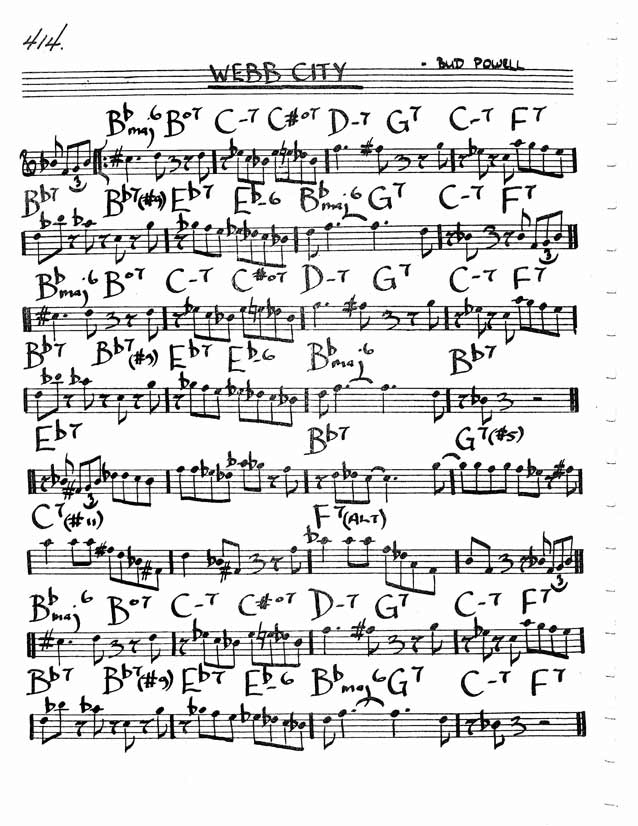 414.
WEBB CITY
- BUD POWELL
Bb maj6 Bo7 C-7 C#o7 D-7 G7 C-7 F7
3
Bb7 Bb7(#9) Eb7 Eb-6 Bb maj6 G7 C-7 F7
3
Bb maj6 Bo7 C-7 C#o7 D-7 G7 C-7 F7
Bb7 Bb7(#9) Eb7 Eb-6 Bb maj6 Bb7
Eb7 Bb7 G7(#5)
3
C7(#11) F7(ALT)
3
Bb maj6 Bo7 C-7 C#o7 D-7 G7 C-7 F7
Bb7 Bb7(#9) Eb7 Eb-6 Bb maj6 G7 C-7 F7